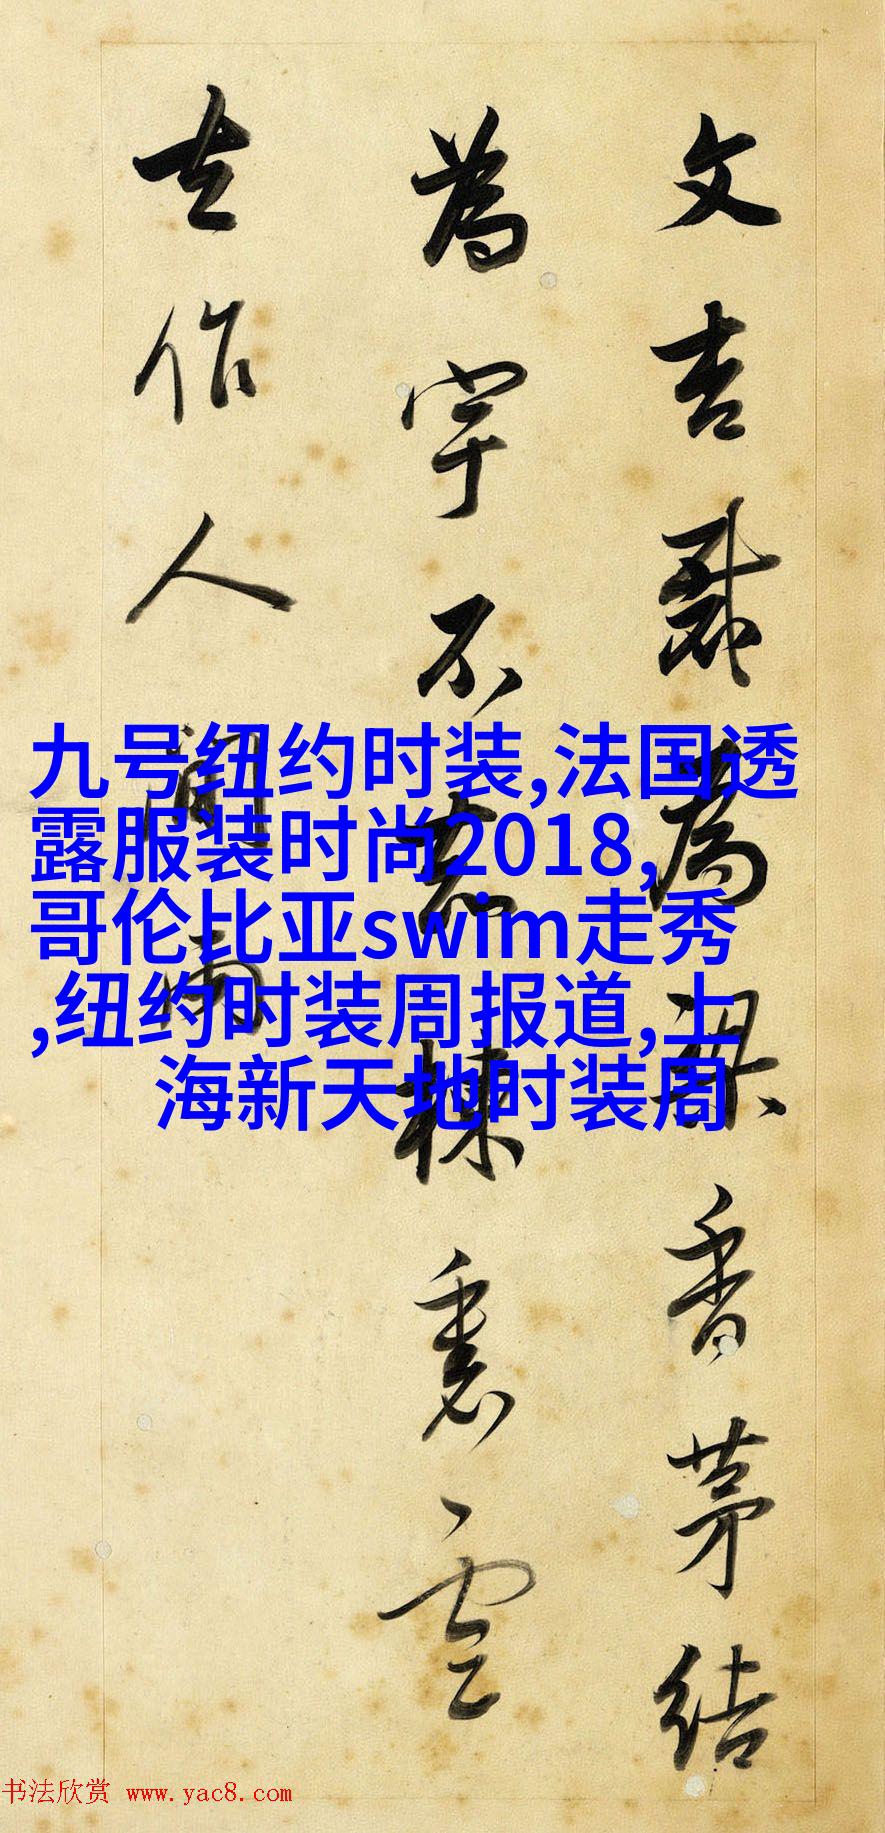 文杏裁為梁香茅結
為宇不知棟裏雲
去作人間雨
九号纽约时装,法国透
露服装时尚2018,
哥伦比亚swim走秀
,纽约时装周报道,上
海新天地时装周
书法欣赏 www.yac8.com